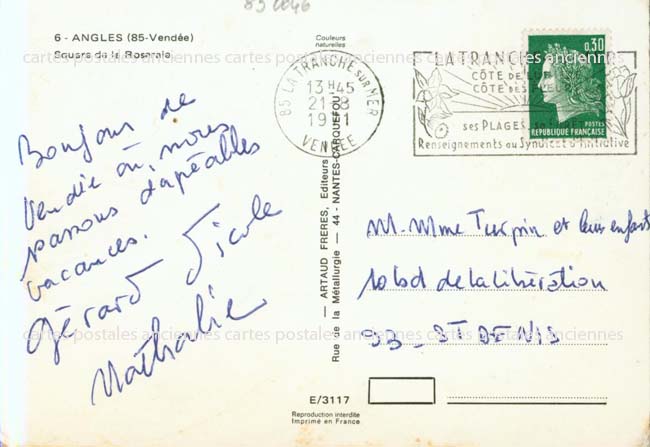 85 0046
6 - ANGLES (85-Vendée)
Square de la Roseraie
Couleurs
naturelles
85 LA TRANCHE SUR MER
13 H 45
21-8
19 1
VENDÉE
LA TRANCHE
CÔTE DE LUM
CÔTE DES FLEUR
ses PLAGES
Renseignements au Syndicat d'Initiative
0,30
POSTES
REPUBLIQUE FRANÇAISE
Bonjour de
Vendée où nous
passons d'agréables
vacances.
Gérard Nicole
Nathalie
— ARTAUD FRERES, Editeurs —
Rue de la Métallurgie — 44 - NANTES-CARQUEFOU
M. Mme Turpin et leurs enfants
10 bd de la libération
93 - ST DENIS
cartes postales anciennes cartes postales anciennes cartes postales anciennes
E/3117
Reproduction interdite
Imprimé en France